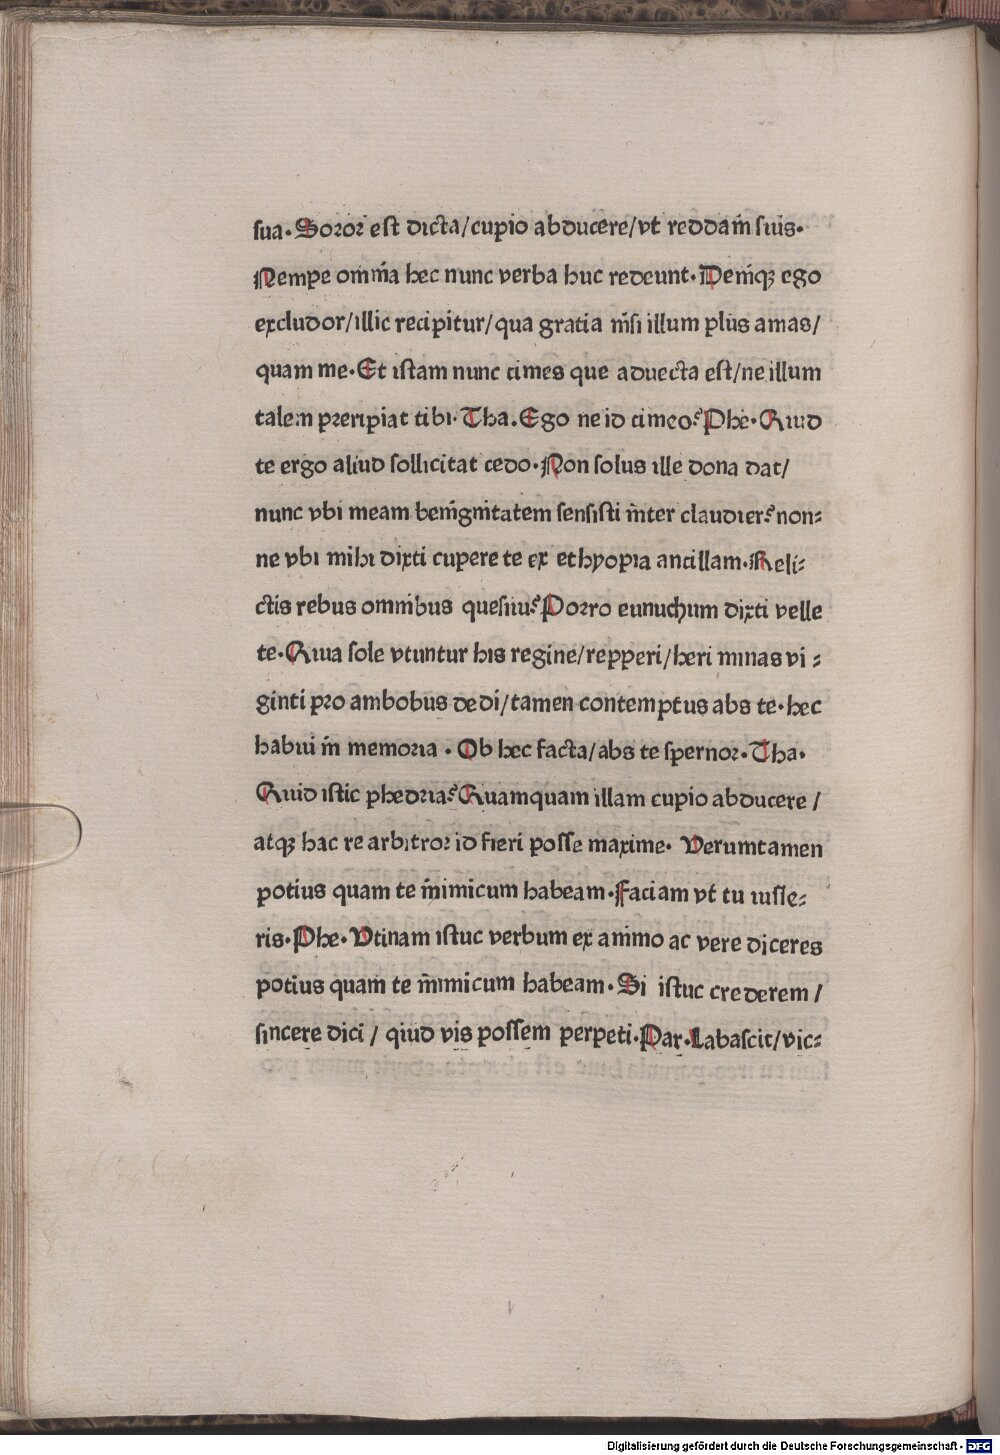 sua. Soror est dicta/cupio abducere/vt reddam̄ suis.
Nempe omnia hec nunc verba huc redeunt. Deniqȝ ego
excludor/illic recipitur/qua gratia nisi illum plus amas/
quam me. Et istam nunc times que aduecta est/ne illum
talem preripiat tibi. Tha. Ego ne id timeo? Phe. Quid
te ergo aliud sollicitat cedo. Non solus ille dona dat/
nunc vbi meam benignitatem sensisti inter claudier? non⸗
ne vbi mihi dixti cupere te ex ethyopia ancillam. Reli⸗
ctis rebus omnibus quesiui? Porro eunuchum dixti velle
te. Quia sole vtuntur his regine/repperi/heri minas vi⸗
ginti pro ambobus dedi/tamen contemptus abs te. hec
habui in memoria. Ob hec facta/abs te spernor. Tha.
Quid istic phedria? Quamquam illam cupio abducere/
atqȝ hac re arbitror id fieri posse maxime. Verumtamen
potius quam te inimicum habeam. Faciam vt tu iusse⸗
ris. Phe. Vtinam istuc verbum ex animo ac vere diceres
potius quam te inimicum habeam. Si istuc crederem/
sincere dici/ qiud vis possem perpeti. Par. Labascit/vic⸗
Digitalisierung gefördert durch die Deutsche Forschungsgemeinschaft - DFG